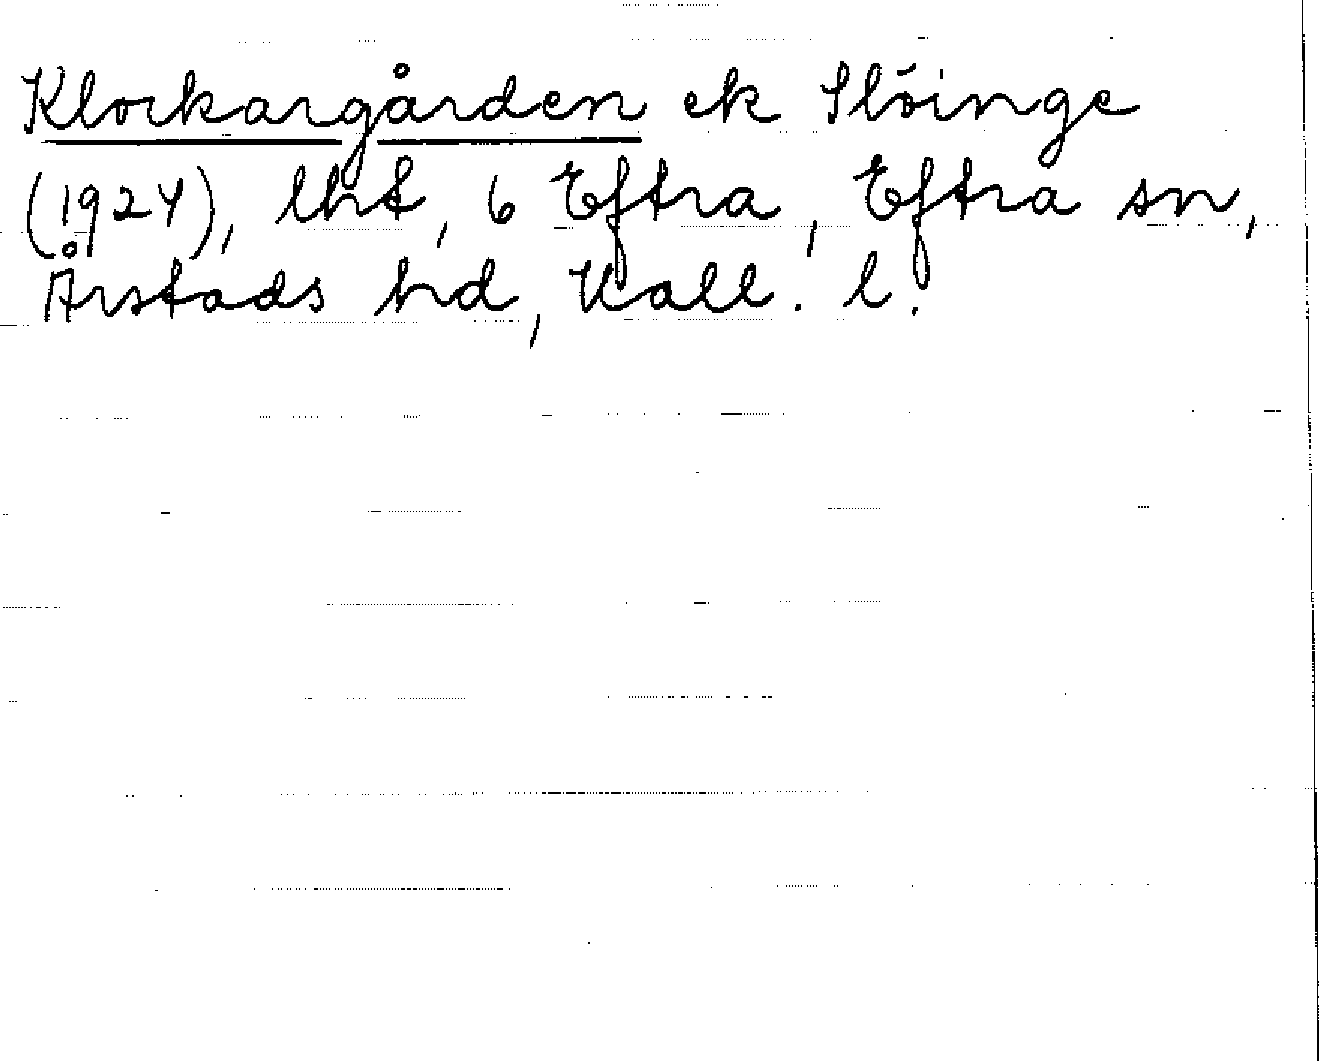 Klockargården ek Slöinge
(1924), lht, 6 Eftra, Eftra sn,
Årstads hd, Hall. l.